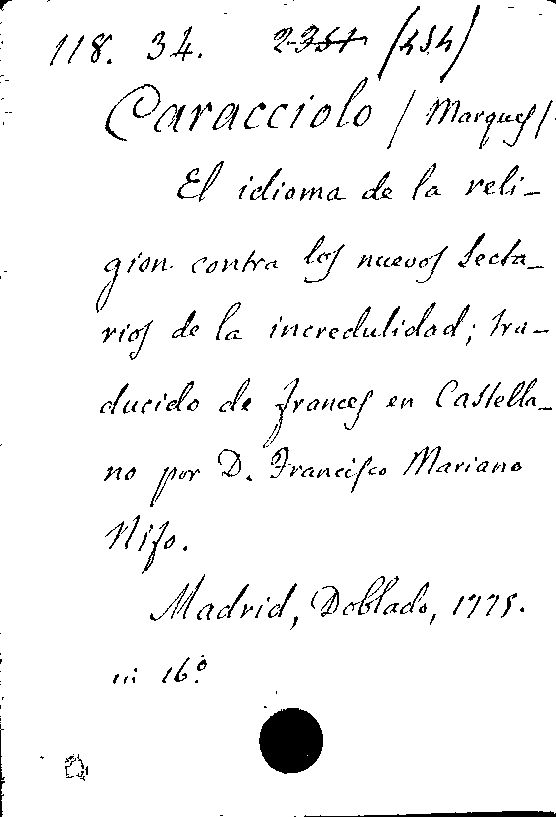 118. 34. 2351 (454)
Caracciolo (Marques).
El idioma de la reli-
gion contra los nuevos secta-
rios de la incredulidad; tra-
ducido de frances en Castella-
no por D. Francisco Mariano
Nifo.
Madrid, Doblado, 1775.
in 16.º